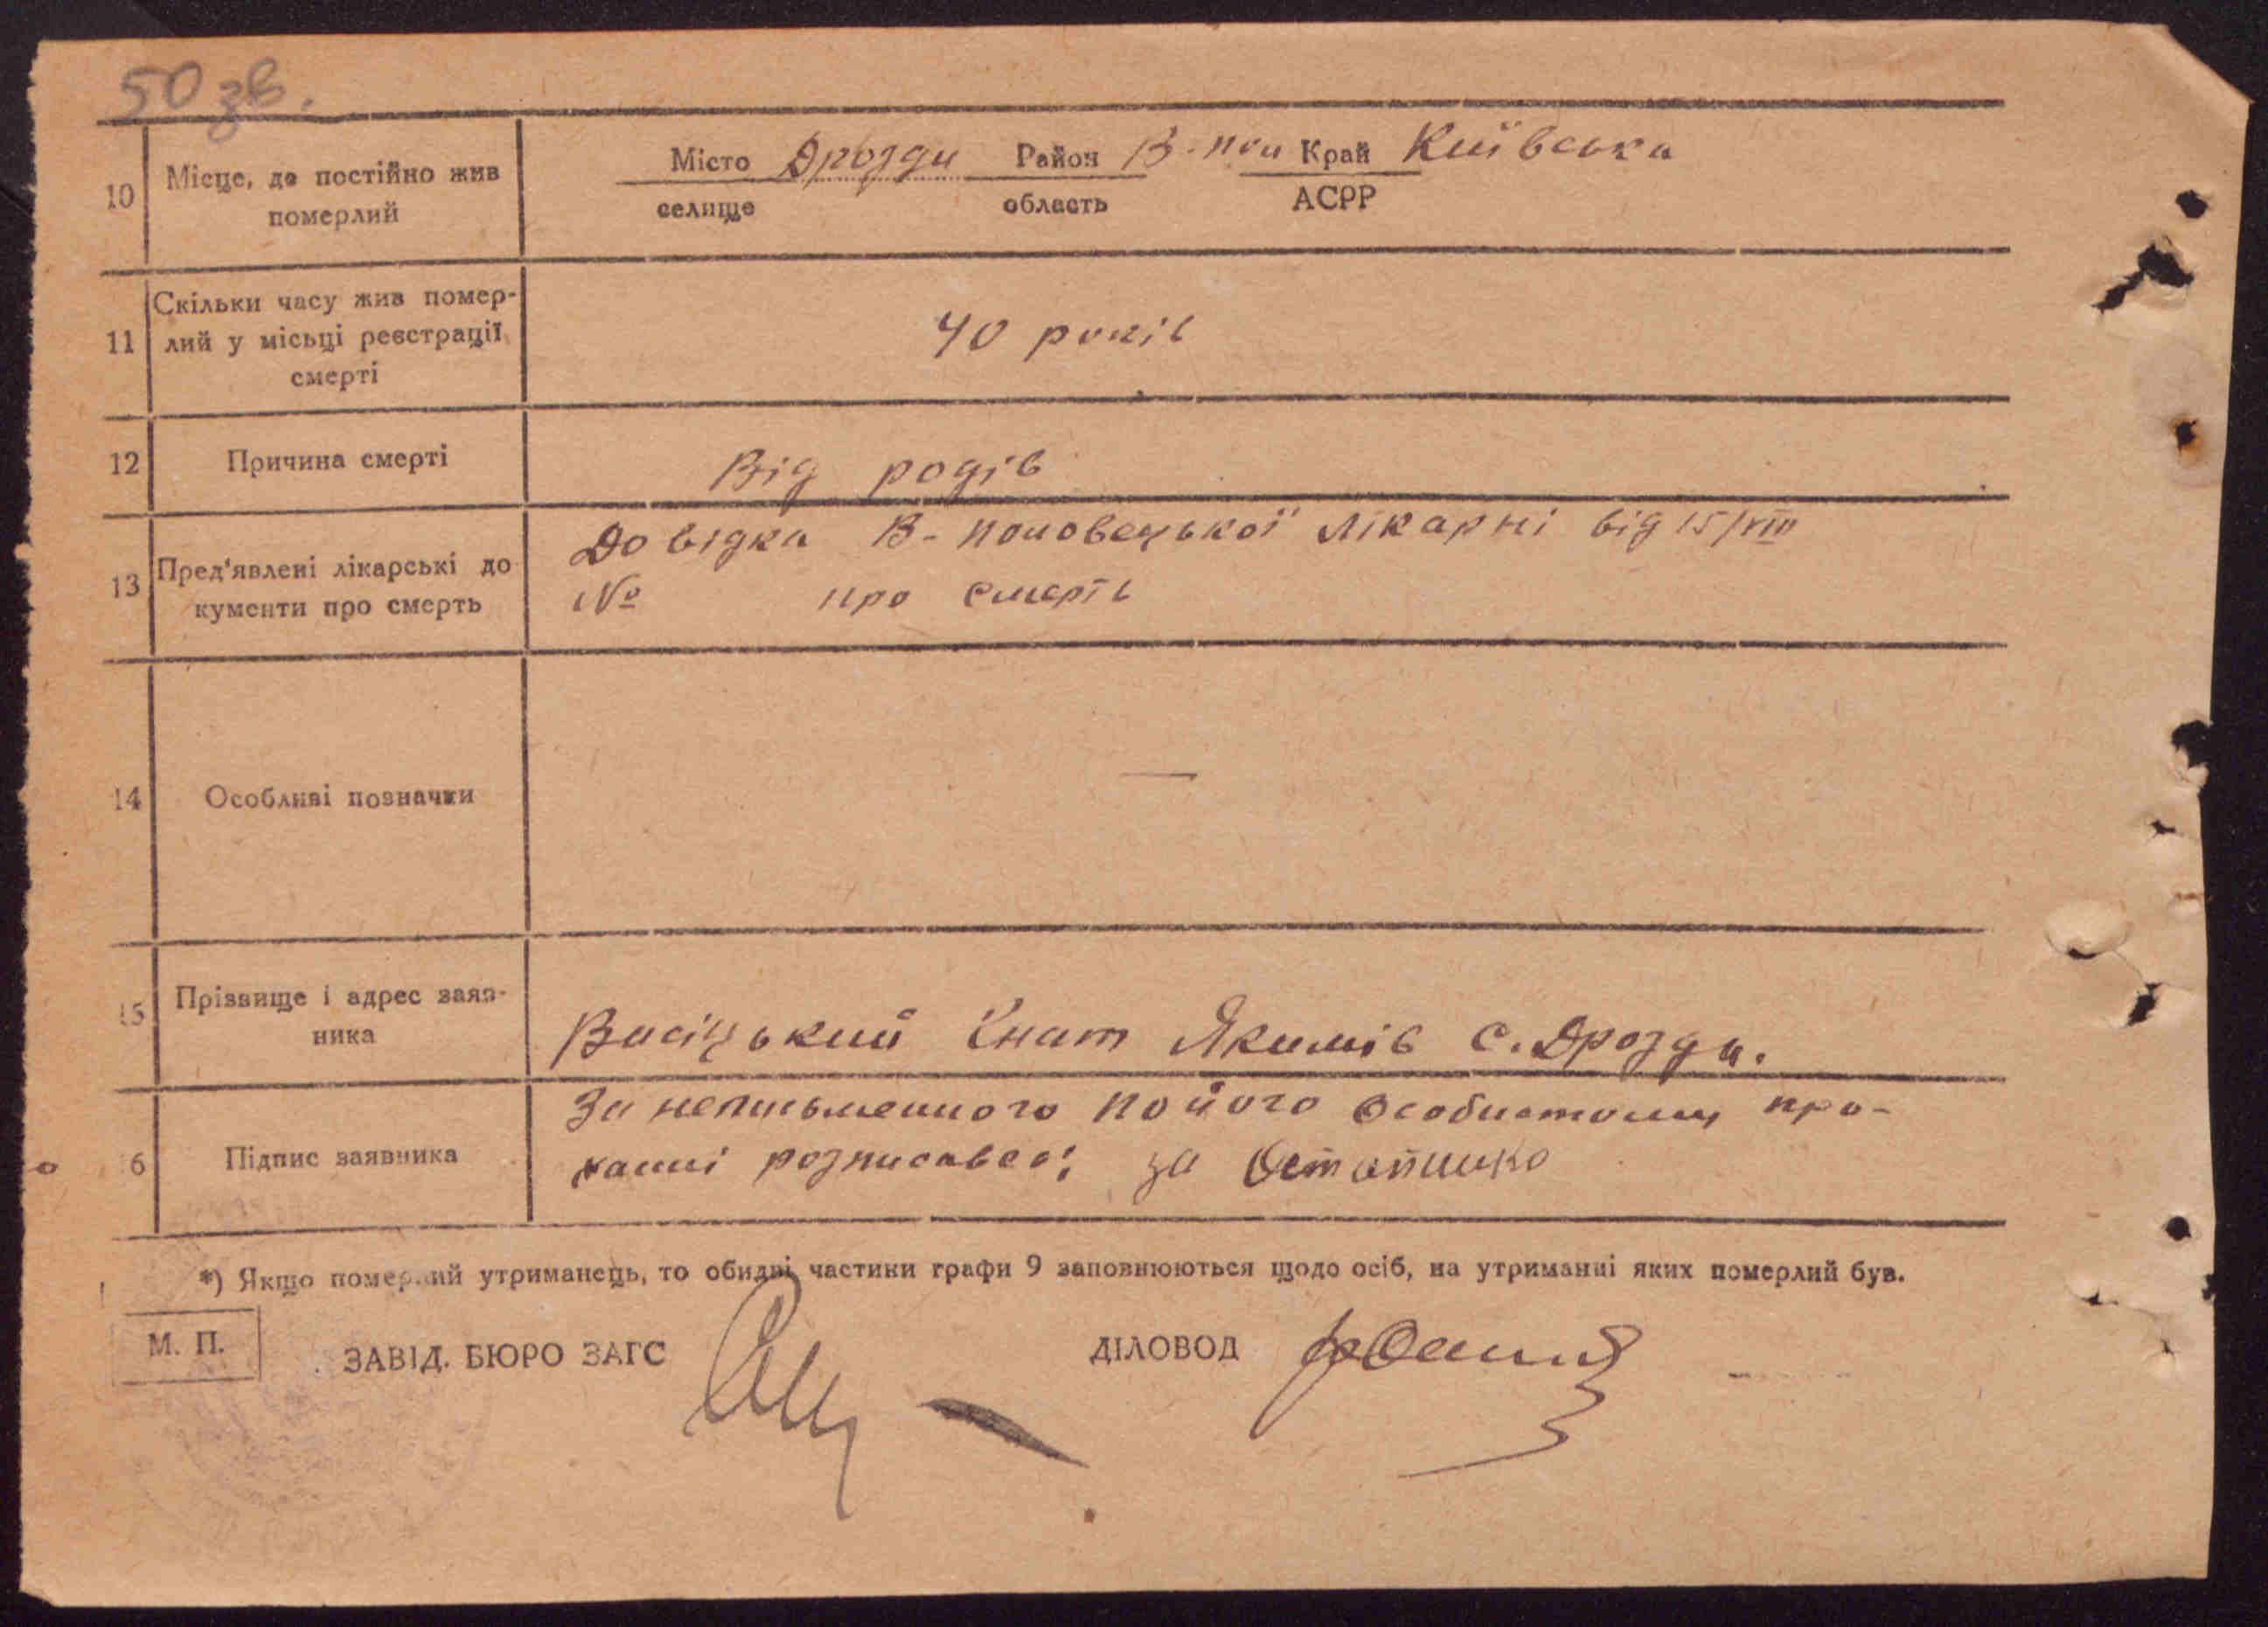 50 зв.
10 Місце, де постійно жив померлий
Місто Дрозди Район В-пол Край Київська
селище область АСРР
11 Скільки часу жив помер-
лий у місьці реєстрації
смерті
40 років
12 Причина смерті
Від родів
13 Пред'явлені лікарські до
кументи про смерть
Довідка В-Половецької лікарні від 15/VIII
№ про смерть
14 Особливі позначки
—
15 Прізвище і адрес заяв-
ника
Васіцький Гнат Якимів с. Дрозди.
6 Підпис заявника
За неписьменного по його особистому про-
ханні розписався: за
*) Якщо померлий утриманець, то обидві частини графи 9 заповнюються щодо осіб, на утриманні яких померлий був.
М. П.
ЗАВІД. БЮРО ЗАГС
ДІЛОВОД